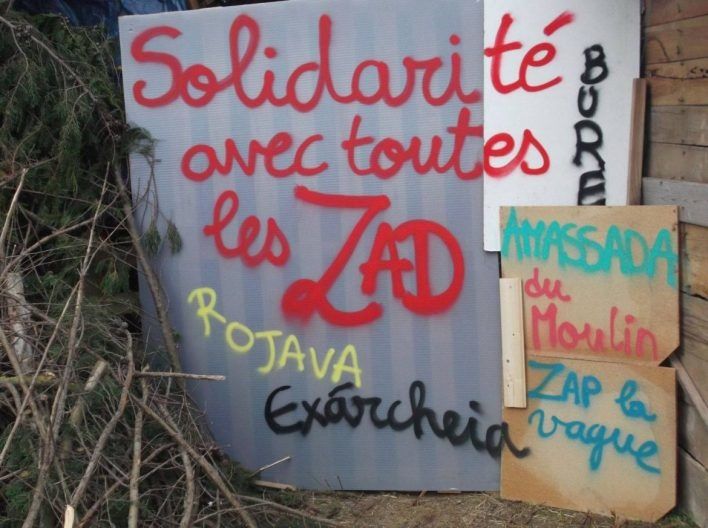 Solidarité
avec toutes
les ZAD
BURE
ROJAVA
Exárcheia
AMASSADA
du
Moulin
ZAP la
vague